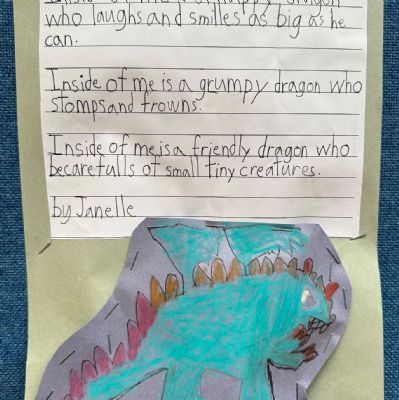 Inside of me is a happy dragon
who laughs and smilles as big as he
can.
Inside of me is a grumpy dragon who
stomps and frowns.
Inside of me is a friendly dragon who
becarefulls of small tiny creatures.
by Janelle